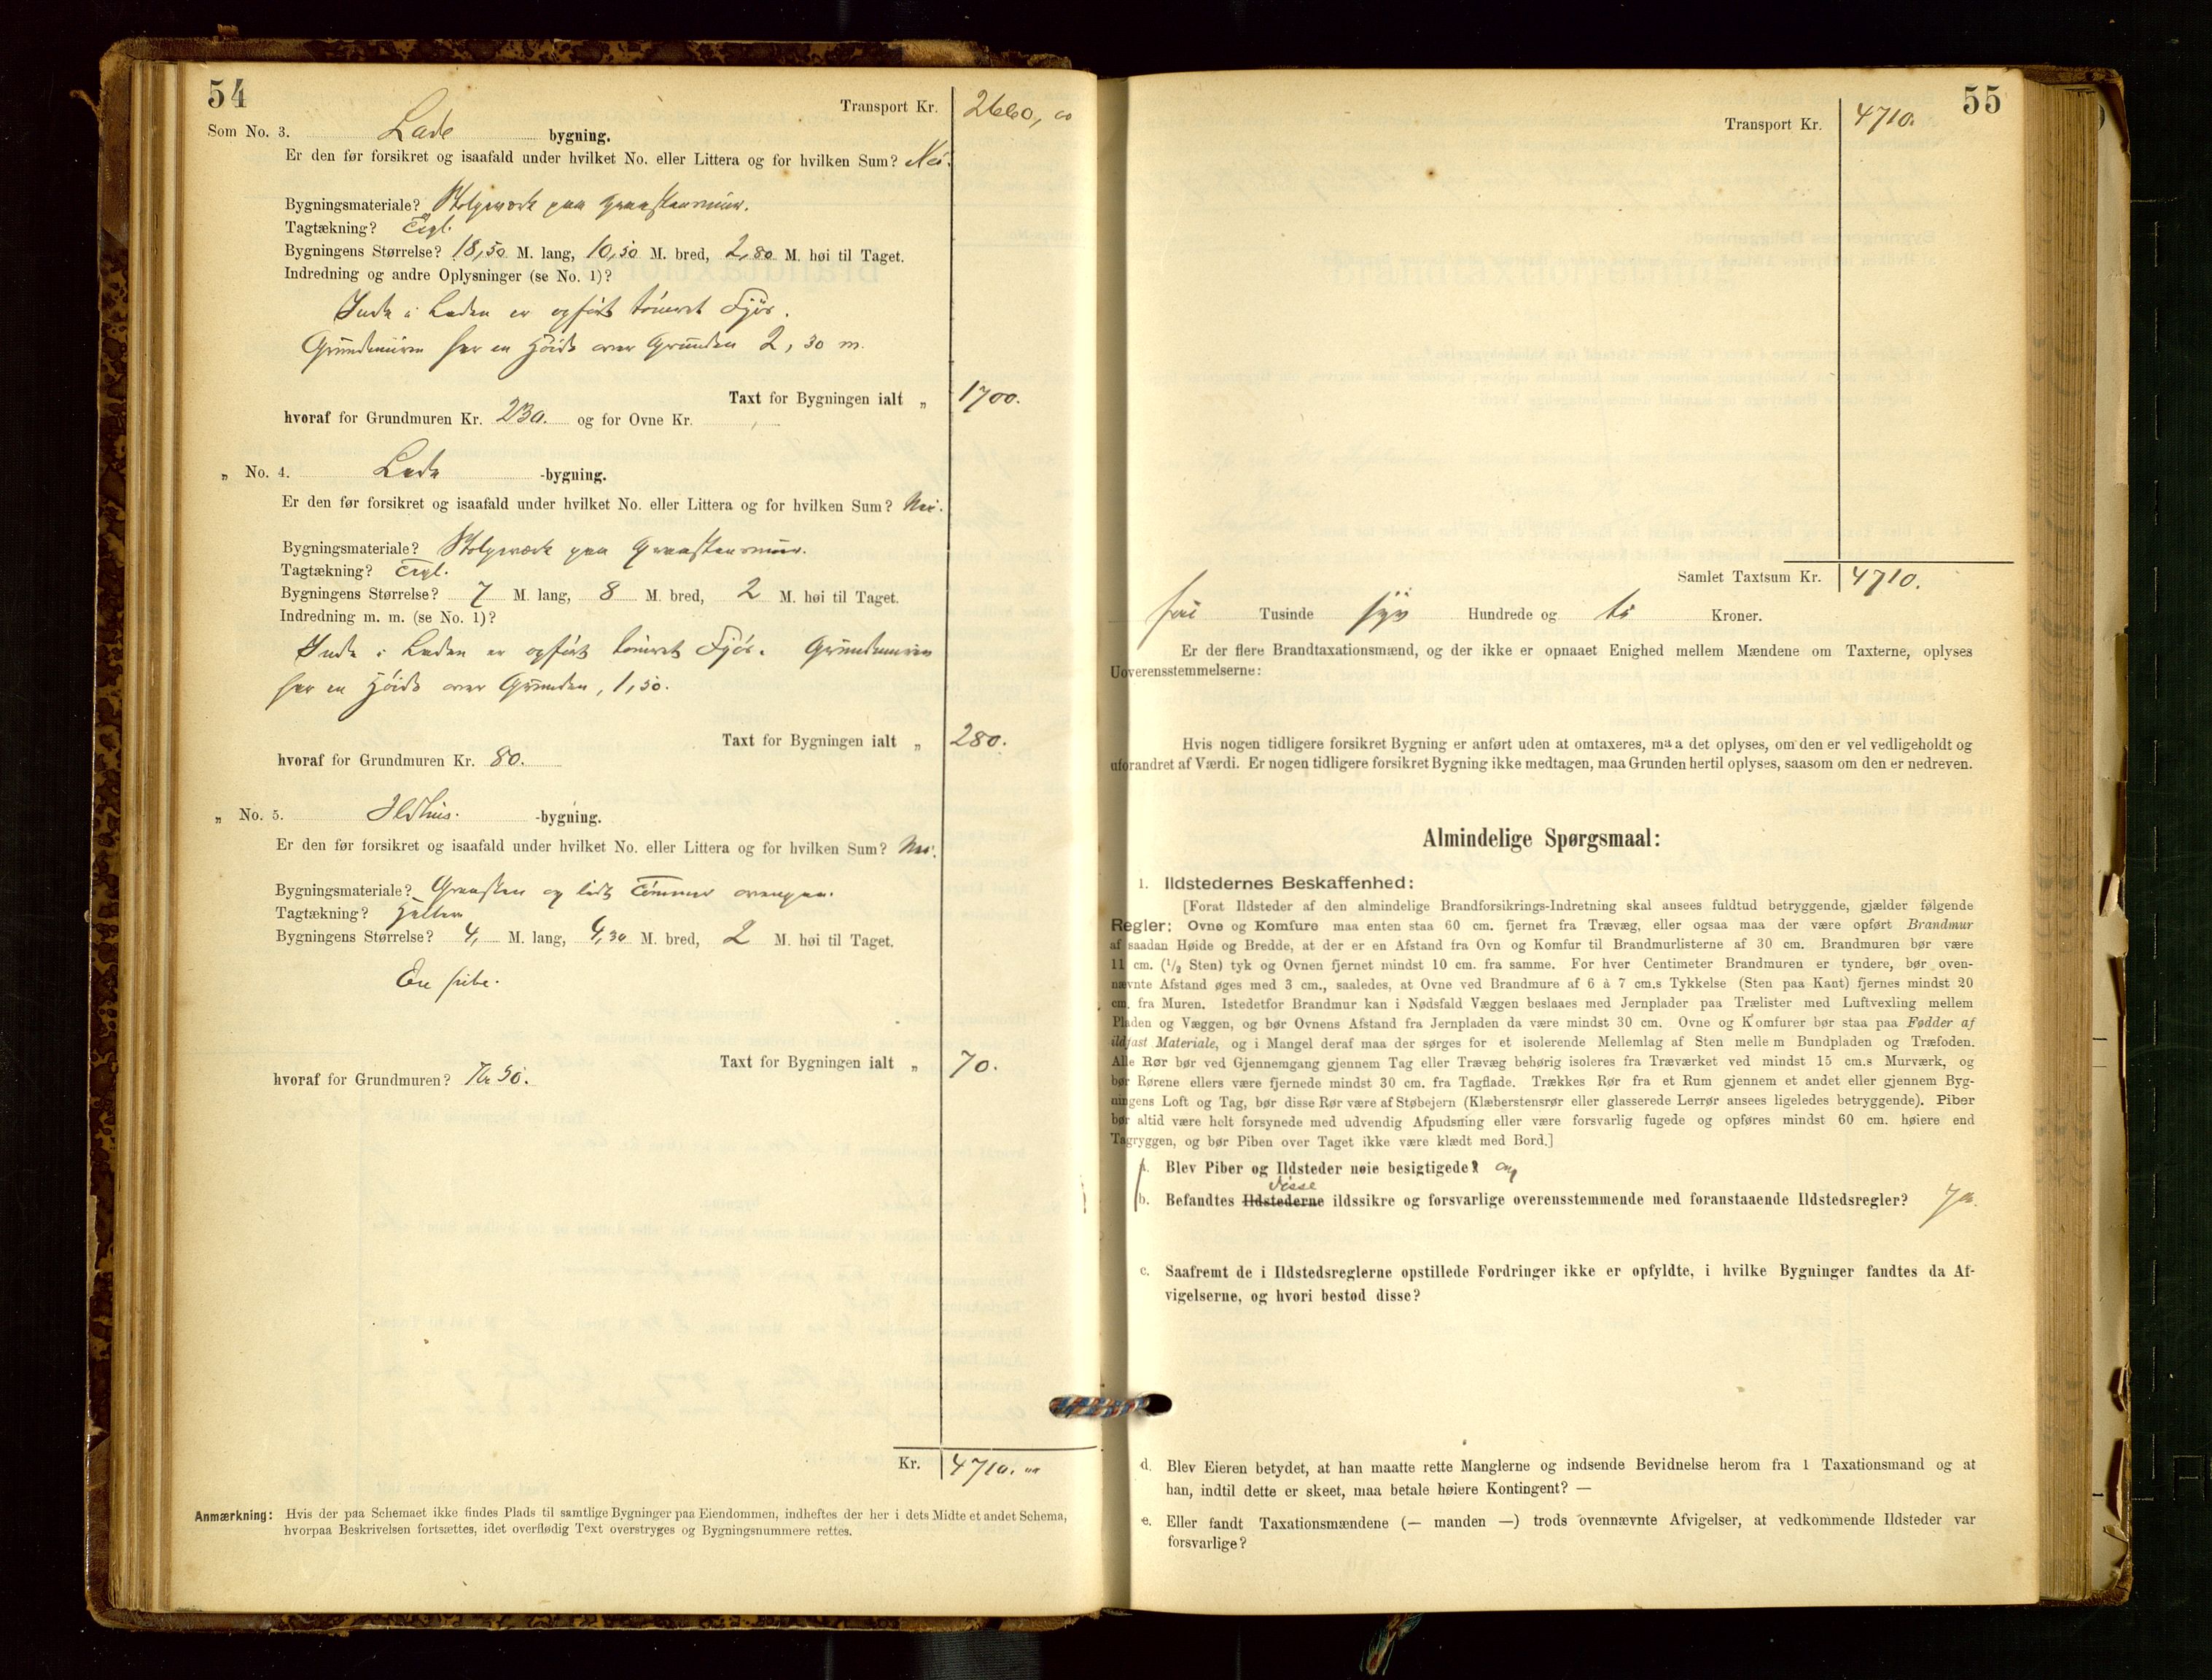 54
Transport Kr. 2660, 00
Som No. 3. Lade bygning.
Er den før forsikret og isaafald under hvilket No. eller Littera og for hvilken Sum? Nei.
Bygningsmateriale? Stolpeværk paa Graastensmuur.
Tagtækning? Tegl.
Bygningens Størrelse? 18,50 M. lang, 10,50 M. bred, 2,80 M. høi til Taget.
Indredning og andre Oplysninger (se No. 1)?
Inde i Laden er opført tømret Fjøs.
Grundmuren har en Høide over Grunden 2,30 m.
Taxt for Bygningen ialt „ 1700.
hvoraf for Grundmuren Kr. 230. og for Ovne Kr.
„ No. 4. Lade -bygning.
Er den før forsikret og isaafald under hvilket No. eller Littera og for hvilken Sum? Nei.
Bygningsmateriale? Stolpeværk paa Graastensmuur.
Tagtækning? Tegl.
Bygningens Størrelse? 7 M. lang, 8 M. bred, 2 M. høi til Taget.
Indredning m. m. (se No. 1)?
Inde i Laden er opført tømret Fjøs. Grundmuren
har en Høide over Grunden, 1,50.
Taxt for Bygningen ialt „ 280.
hvoraf for Grundmuren Kr. 80.
„ No. 5. Ildhus. -bygning.
Er den før forsikret og isaafald under hvilket No. eller Littera og for hvilken Sum? Nei.
Bygningsmateriale? Graasten og lidt Tømmer ovenpaa.
Tagtækning? Heller
Bygningens Størrelse? 4, M. lang, 4,30 M. bred, 2 M. høi til Taget.
En pibe.
Taxt for Bygningen ialt „ 70.
hvoraf for Grundmuren? Kr 50.
Kr. 4710. 00
Anmærkning: Hvis der paa Schemaet ikke findes Plads til samtlige Bygninger paa Eiendommen, indheftes der her i dets Midte et andet Schema,
hvorpaa Beskrivelsen fortsættes, idet overflødig Text overstryges og Bygningsnummere rettes.
55
Transport Kr. 4710.
Samlet Taxtsum Kr. 4710.
fire Tusinde syv Hundrede og ti Kroner.
Er der flere Brandtaxationsmænd, og der ikke er opnaaet Enighed mellem Mændene om Taxterne, oplyses
Uoverensstemmelserne:
Hvis nogen tidligere forsikret Bygning er anført uden at omtaxeres, maa det oplyses, om den er vel vedligeholdt og
uforandret af Værdi. Er nogen tidligere forsikret Bygning ikke medtagen, maa Grunden hertil oplyses, saasom om den er nedreven.
Almindelige Spørgsmaal:
1. Ildstedernes Beskaffenhed:
[Forat Ildsteder af den almindelige Brandforsikrings-Indretning skal ansees fuldtud betryggende, gjælder følgende
Regler: Ovne og Komfure maa enten staa 60 cm. fjernet fra Trævæg, eller ogsaa maa der være opført Brandmur
af saadan Høide og Bredde, at der er en Afstand fra Ovn og Komfur til Brandmurlisterne af 30 cm. Brandmuren bør være
11 cm. (1/2 Sten) tyk og Ovnen fjernet mindst 10 cm. fra samme. For hver Centimeter Brandmuren er tyndere, bør oven-
nævnte Afstand øges med 3 cm., saaledes, at Ovne ved Brandmure af 6 à 7 cm.s Tykkelse (Sten paa Kant) fjernes mindst 20
cm. fra Muren. Istedetfor Brandmur kan i Nødsfald Væggen beslaaes med Jernplader paa Trælister med Luftvexling mellem
Pladen og Væggen, og bør Ovnens Afstand fra Jernpladen da være mindst 30 cm. Ovne og Komfurer bør staa paa Fødder af
ildfast Materiale, og i Mangel deraf maa der sørges for et isolerende Mellemlag af Sten mellem Bundpladen og Træfoden.
Alle Rør bør ved Gjennemgang gjennem Tag eller Trævæg behørig isoleres fra Træværket ved mindst 15 cm.s Murværk, og
bør Rørene ellers være fjernede mindst 30 cm. fra Tagflade. Trækkes Rør fra et Rum gjennem et andet eller gjennem Byg-
ningens Loft og Tag, bør disse Rør være af Støbejern (Klæberstensrør eller glasserede Lerrør ansees ligeledes betryggende). Piber
bør altid være helt forsynede med udvendig Afpudsning eller være forsvarlig fugede og opføres mindst 60 cm. høiere end
Tagryggen, og bør Piben over Taget ikke være klædt med Bord.]
a. Blev Piber og Ildsteder nøie besigtigede? og
disse
b. Befandtes Ildstederne ildssikre og forsvarlige overensstemmende med foranstaaende Ildstedsregler? Ja.
c. Saafremt de i Ildstedsreglerne opstillede Fordringer ikke er opfyldte, i hvilke Bygninger fandtes da Af-
vigelserne, og hvori bestod disse?
d. Blev Eieren betydet, at han maatte rette Manglerne og indsende Bevidnelse herom fra 1 Taxationsmand og at
han, indtil dette er skeet, maa betale høiere Kontingent? —
e. Eller fandt Taxationsmændene (— manden —) trods ovennævnte Afvigelser, at vedkommende Ildsteder var
forsvarlige?